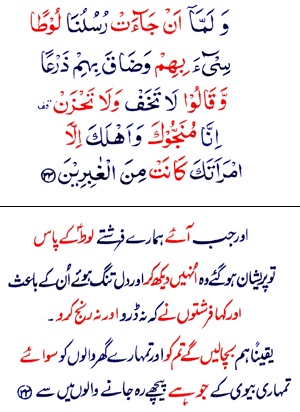 وَ لَمَّاۤ اَنْ جَآءَتْ رُسُلُنَا لُوْطًا
سِیْٓءَ بِهِمْ وَضَاقَ بِهِمْ ذَرْعًا
وَّ قَالُوْا لَا تَخَفْ وَلَا تَحْزَنْ
اِنَّا مُنَجُّوْكَ وَاَهْلَكَ اِلَّا
امْرَاَتَكَ كَانَتْ مِنَ الْغٰبِرِیْنَ ﴿۳۳﴾
اور جب آئے ہمارے فرشتے لوطؑ کے پاس
تو پریشان ہو گئے وہ اُنہیں دیکھ کر اور دل تنگ ہوئے اُن کے باعث
اور کہا فرشتوں نے کہ نہ ڈرو اور نہ رنج کرو ۔
یقیناً ہم بچالیں گے تم کو اور تمہارے گھر والوں کو سوائے
تمہاری بیوی کے جو ہے پیچھے رہ جانے والوں میں سے ﴿۳۳﴾